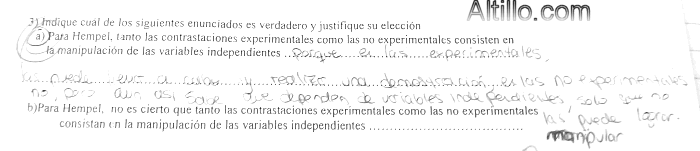 Altillo.com
3) Indique cuál de los siguientes enunciados es verdadero y justifique su elección
a) Para Hempel, tanto las contrastaciones experimentales como las no experimentales consisten en
la manipulación de las variables independientes ..porque en las experimentales,
se puede a cabo y realizar una demostración, en las no experimentales
no, pero aun asi sabe que dependen de variables independientes, solo que no
b)Para Hempel, no es cierto que tanto las contrastaciones experimentales como las no experimentales
las puede lograr.
consistan en la manipulación de las variables independientes ..............................
manipular